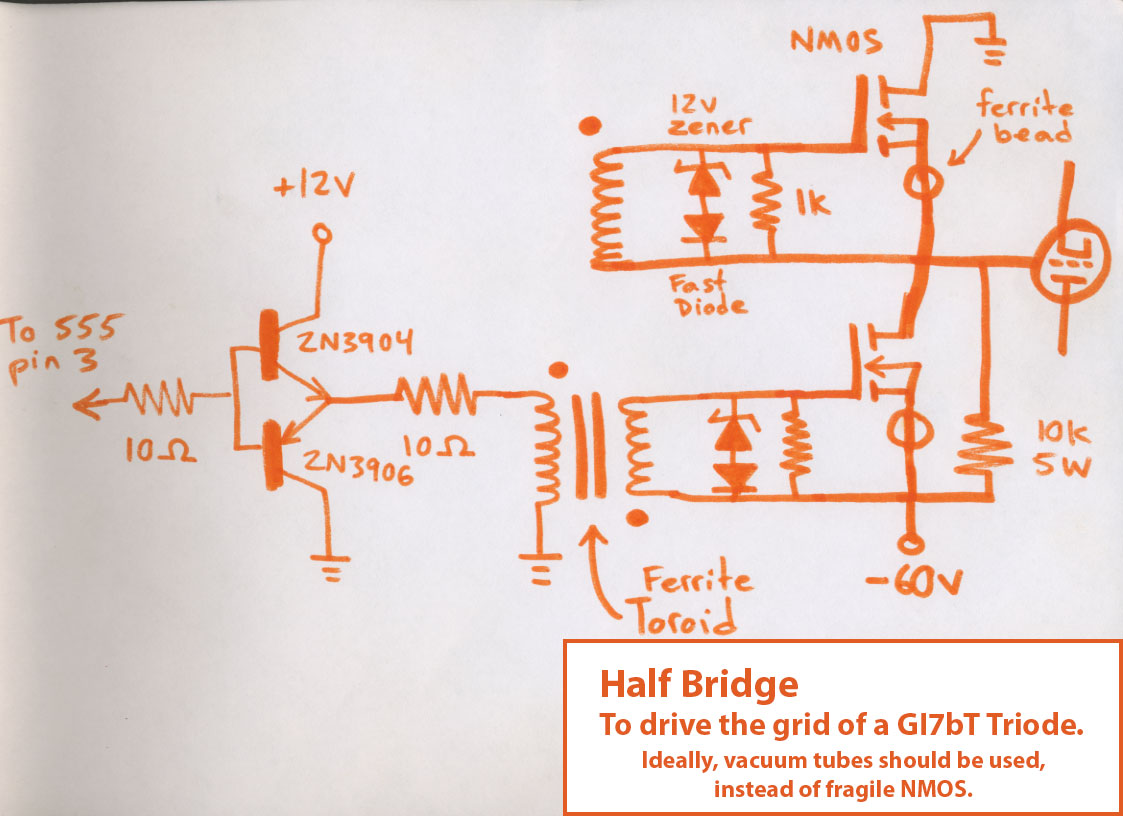 NMOS
12V
zener
ferrite
bead
+12V
1K
Fast
Diode
To 555
pin 3
2N3904
10Ω
10Ω
2N3906
10K
5W
-60V
Ferrite
Toroid
Half Bridge
To drive the grid of a GI7bT Triode.
Ideally, vacuum tubes should be used,
instead of fragile NMOS.